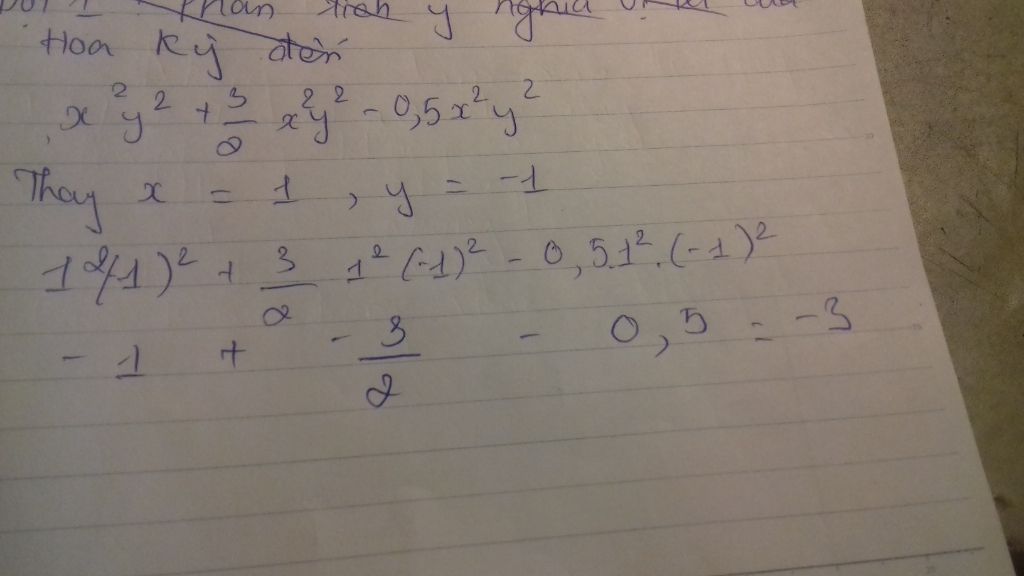 Phân tích ý nghĩa
Hoa Kỳ đến
x²y² + 3/2 x²y² - 0,5x²y²
Thay x = 1 , y = -1
1²(-1)² + 3/2 1²(-1)² - 0,5.1².(-1)²
- 1 + - 3/2 - 0,5 = -3